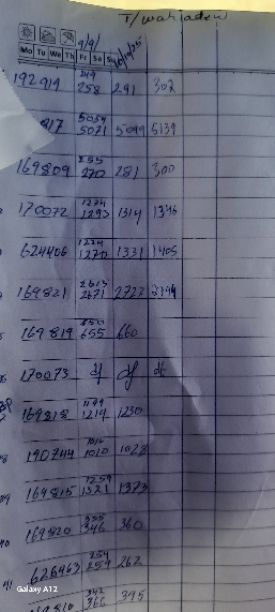 T/wahjadew
Mo Tu We Th Fr Sa Su
9/9/
192919 258 291 302
917 5054 5071 5099 5139
169809 255 270 281 300
170072 1274 1293 1314
624406 1224 1270 1331 1405
169821 2613 2671 2722
169819 650 655 660
170073 df df df
169818 1199 1214 1230
190744 1016 1020 1028
169815 1259 1321 1373
169820 335 346 360
626463 254 259 262
169810 342 366 395
Galaxy A12